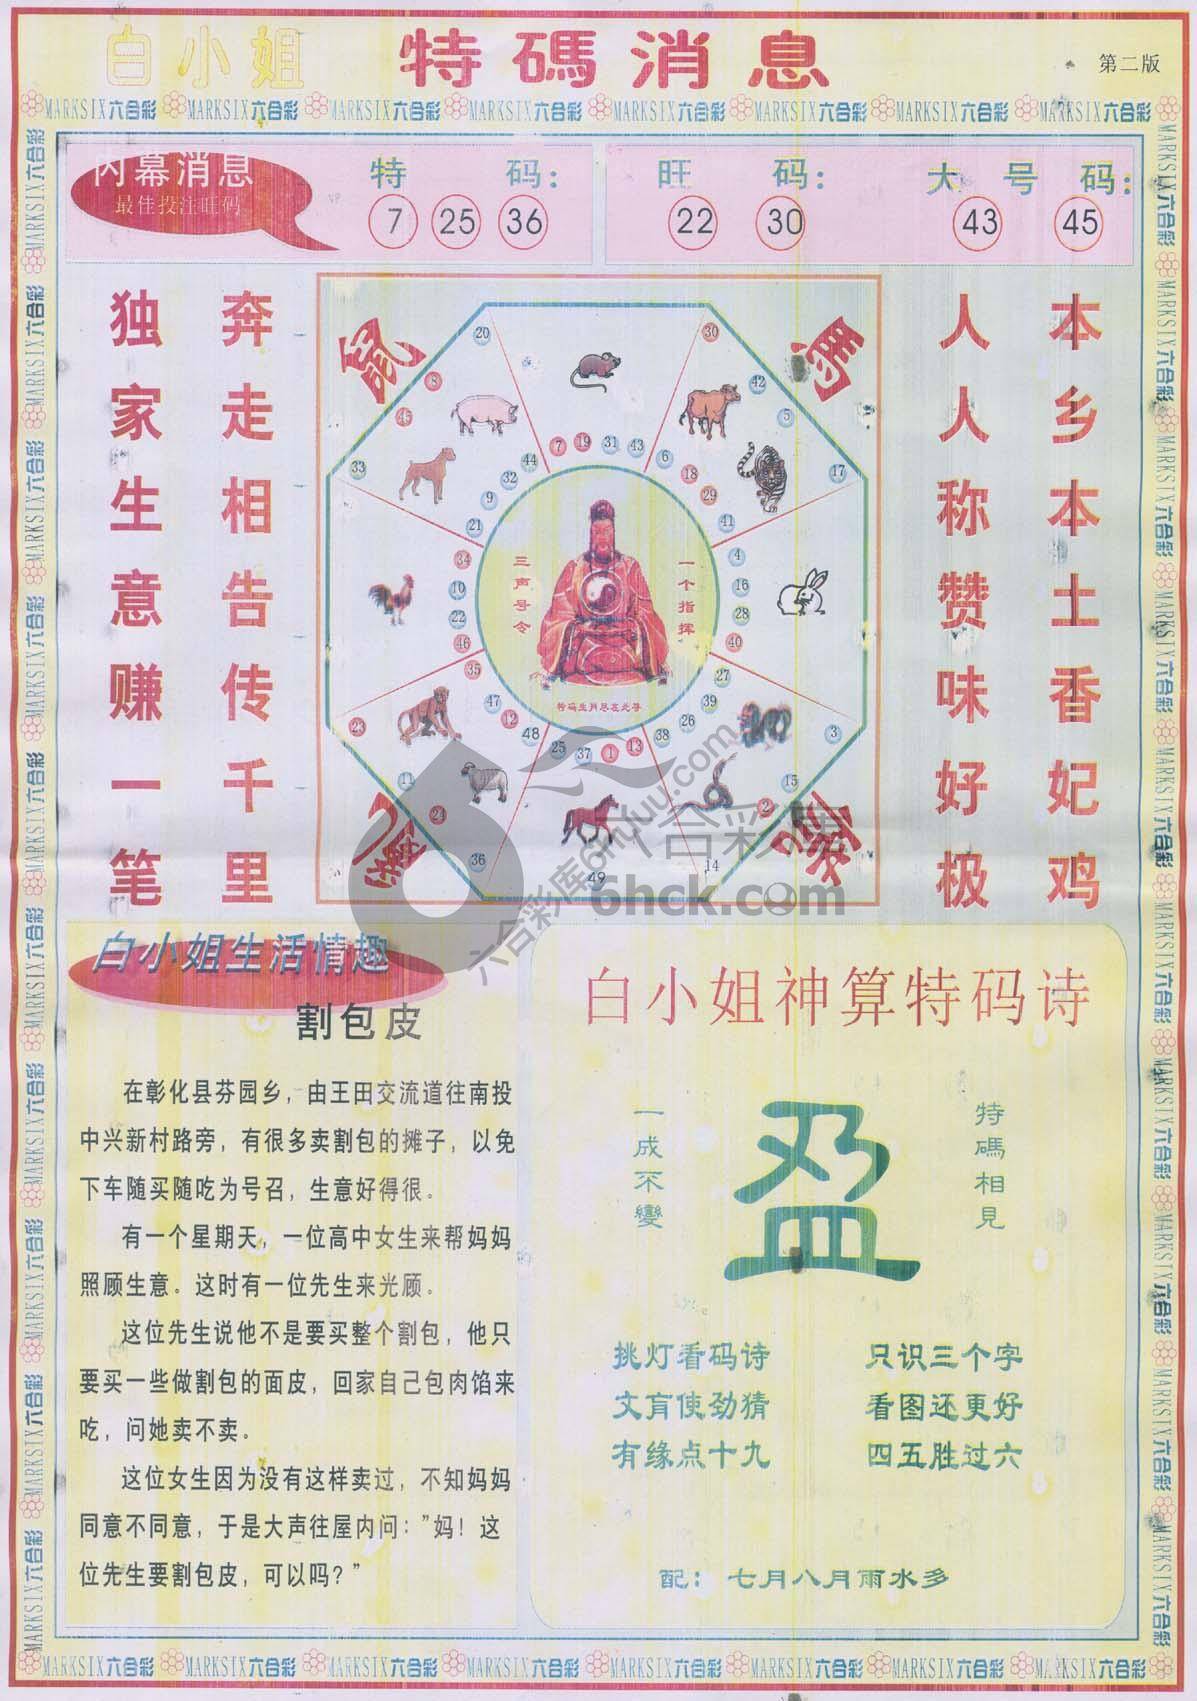 白小姐 特碼消息
第二版
MARKSIX六合彩 MARKSIX六合彩 MARKSIX六合彩 MARKSIX六合彩 MARKSIX六合彩 MARKSIX六合彩 MARKSIX六合彩 MARKSIX六合彩
内幕消息
最佳投注旺码
特码：
7 25 36
旺码：
22 30
大号码：
43 45
本乡本土香妃鸡
人人称赞味好极
奔走相告传千里
独家生意赚一笔
鼠
馬
20 30
8 42
45 5
7 19 31 43
33 44 6 17
32 18
9 29
21 41
34 4
10 16
22 28
46 40
35 27
47 39
12 26
48 38
25 37 1 13
23 3
11 15
24 2
36 14
49
三声号令
一个指挥
特码生肖尽在此寻
六合彩库6hck.com
6hck.com
白小姐生活情趣
割包皮
在彰化县芬园乡，由王田交流道往南投
中兴新村路旁，有很多卖割包的摊子，以免
下车随买随吃为号召，生意好得很。
有一个星期天，一位高中女生来帮妈妈
照顾生意。这时有一位先生来光顾。
这位先生说他不是要买整个割包，他只
要买一些做割包的面皮，回家自己包肉馅来
吃，问她卖不卖。
这位女生因为没有这样卖过，不知妈妈
同意不同意，于是大声往屋内问："妈！这
位先生要割包皮，可以吗？"
白小姐神算特码诗
特碼相見
一成不變
盈
挑灯看码诗 只识三个字
文肓使劲猜 看图还更好
有缘点十九 四五胜过六
配：七月八月雨水多
MARKSIX六合彩 MARKSIX六合彩 MARKSIX六合彩 MARKSIX六合彩 MARKSIX六合彩 MARKSIX六合彩 MARKSIX六合彩 MARKSIX六合彩